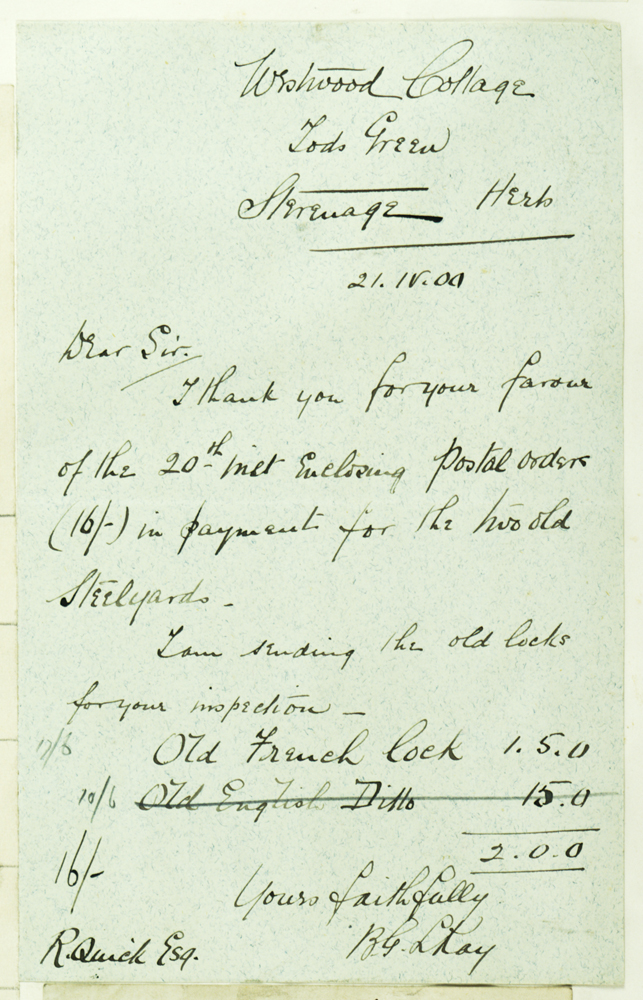 Westwood Cottage
Tods Green
Stevenage Herts
21.IV.00
Dear Sir.
I thank you for your favour
of the 20th inst Enclosing Postal orders
(16/-) in payment for the two old
Steelyards -
I am sending the old locks
for your inspection -
Old French lock 1.5.0
10/6 Old English Ditto 15.0
2.0.0
16/-
Yours faithfully
R. Quick Esq.